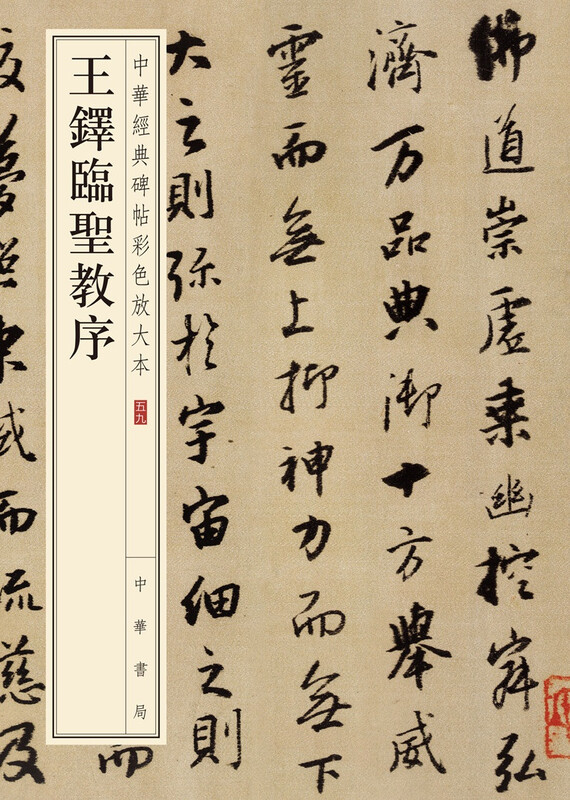 中華經典碑帖彩色放大本
五九
王鐸臨聖教序
中華書局
佛道崇虛乘幽控寂弘
濟万品典御十方舉威
靈而無上抑神力而無下
大之則弥於宇宙細之則
而
夢照東域而流慈及